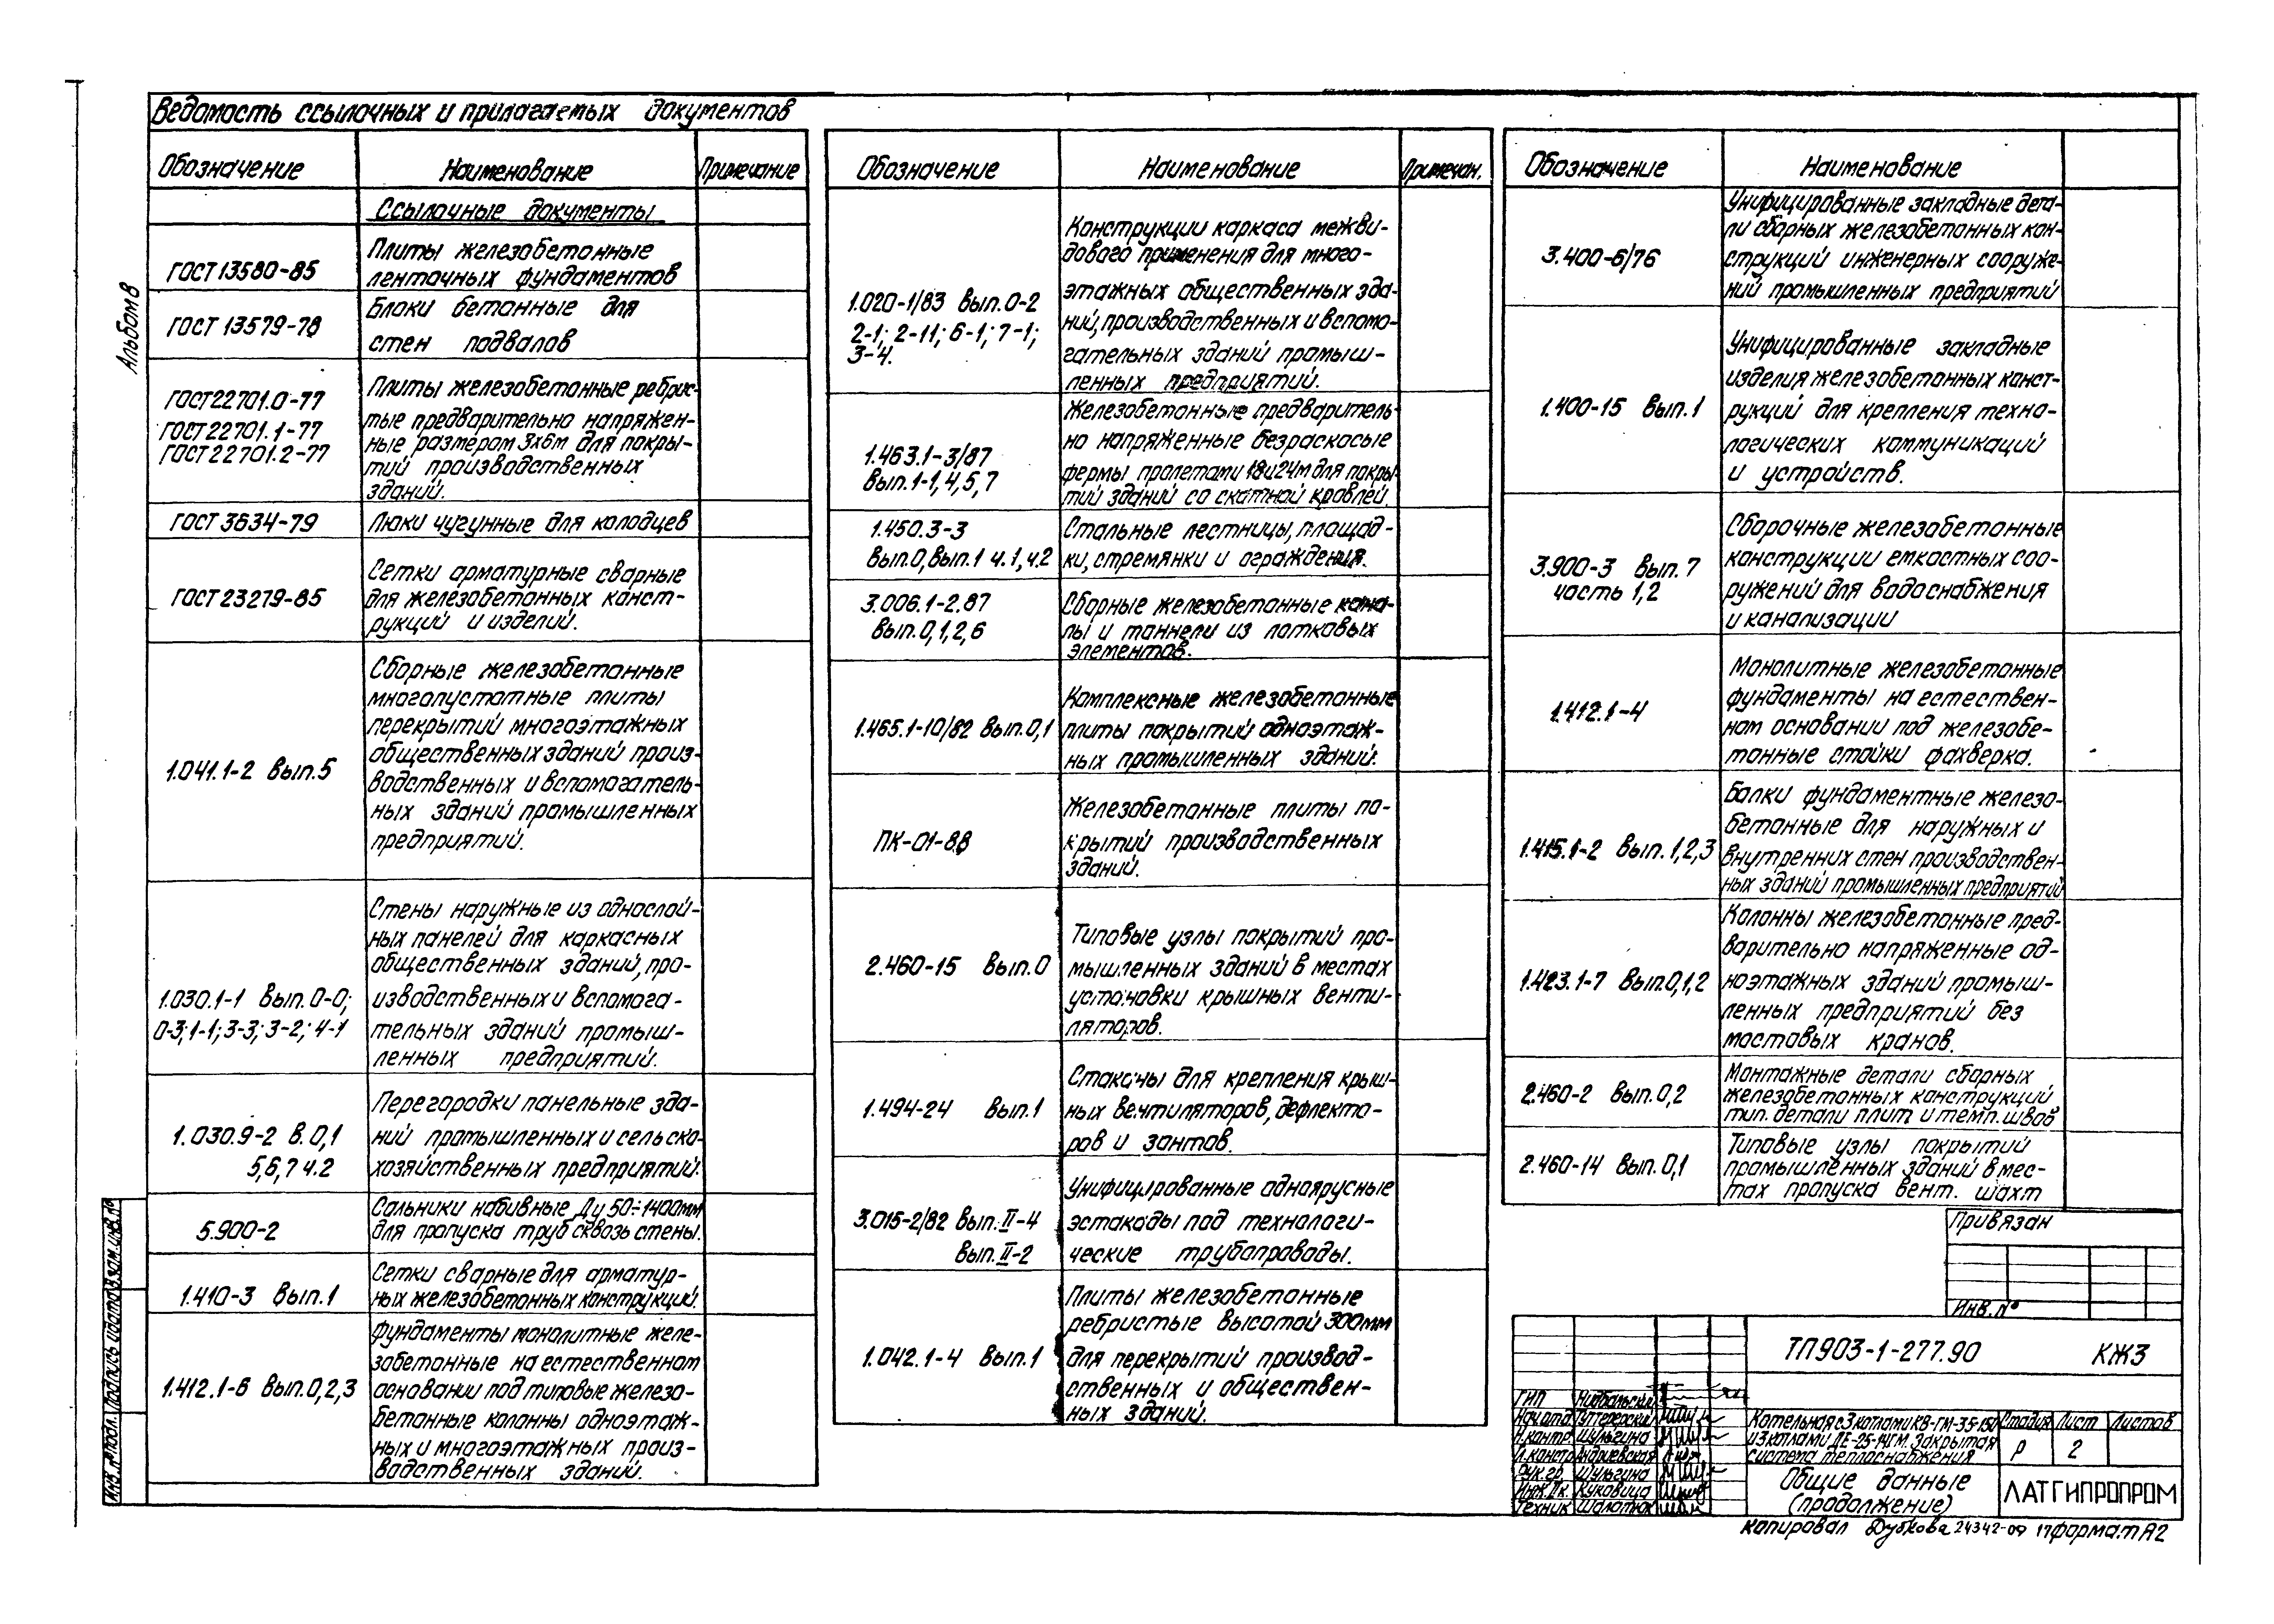 Ведомость ссылочных и прилагаемых документов
Альбом 8
Обозначение
Наименование
Примечание
Ссылочные документы
ГОСТ 13580-85
Плиты железобетонные
ленточных фундаментов
ГОСТ 13579-78
Блоки бетонные для
стен подвалов
ГОСТ 22701.0-77
ГОСТ 22701.1-77
ГОСТ 22701.2-77
Плиты железобетонные ребрис-
тые предварительно напряжен-
ные размером 3х6м для покры-
тий производственных
зданий.
ГОСТ 3634-79
Люки чугунные для колодцев
ГОСТ 23279-85
Сетки арматурные сварные
для железобетонных конст-
рукций и изделий.
1.041.1-2 Вып.5
Сборные железобетонные
многопустотные плиты
перекрытий многоэтажных
общественных зданий произ-
водственных и вспомогатель-
ных зданий промышленных
предприятий.
1.030.1-1 Вып. 0-0;
0-3; 1-1; 3-3; 3-2; 4-1
Стены наружные из однослой-
ных панелей для каркасных
общественных зданий, про-
изводственных и вспомога-
тельных зданий промыш-
ленных предприятий.
1.030.9-2 в. 0,1
5,6,7 ч.2
Перегородки панельные зда-
ний промышленных и сельско-
хозяйственных предприятий.
5.900-2
Сальники набивные Ду 50÷1400мм
для пропуска труб сквозь стены.
1.410-3 Вып.1
Сетки сварные для арматур-
ных железобетонных конструкций.
1.412.1-6 Вып.0,2,3
Фундаменты монолитные желе-
зобетонные на естественном
основании под типовые железо-
бетонные колонны одноэтаж-
ных и многоэтажных произ-
водственных зданий.
Обозначение
Наименование
Примечан.
1.020-1/83 Вып. 0-2
2-1; 2-11; 6-1; 7-1;
3-4.
Конструкции каркаса межви-
дового применения для много-
этажных общественных зда-
ний, производственных и вспомо-
гательных зданий промыш-
ленных предприятий.
1.463.1-3/87
Вып.1-1,4,5,7
Железобетонные предваритель-
но напряженные безраскосые
фермы пролетами 18 и 24м для покры-
тий зданий со скатной кровлей.
1.450.3-3
Вып.0, Вып.1 ч.1, ч.2
Стальные лестницы, площад-
ки, стремянки и ограждения.
3.006.1-2.87
Вып.0,1,2,6
Сборные железобетонные кана-
лы и тоннели из лотковых
элементов.
1.465.1-10/82 Вып.0,1
Комплексные железобетонные
плиты покрытий одноэтаж-
ных промышленных зданий.
ПК-01-88
Железобетонные плиты по-
крытий производственных
зданий.
2.460-15 Вып.0
Типовые узлы покрытий про-
мышленных зданий в местах
установки крышных венти-
ляторов.
1.494-24 Вып.1
Стаканы для крепления крыш-
ных вентиляторов, дефлекто-
ров и зонтов.
3.015-2/82 Вып. II-4
Вып. II-2
Унифицированные одноярусные
эстакады под технологи-
ческие трубопроводы.
1.042.1-4 Вып.1
Плиты железобетонные
ребристые высотой 300мм
для перекрытий производ-
ственных и обществен-
ных зданий.
Обозначение
Наименование
3.400-6/76
Унифицированные закладные дета-
ли сборных железобетонных кон-
струкций инженерных сооруже-
ний промышленных предприятий
1.400-15 Вып.1
Унифицированные закладные
изделия железобетонных конст-
рукций для крепления техно-
логических коммуникаций
и устройств.
3.900-3 Вып. 7
часть 1,2
Сборочные железобетонные
конструкции емкостных соо-
ружений для водоснабжения
и канализации
1.412.1-4
Монолитные железобетонные
фундаменты на естествен-
ном основании под железобе-
тонные стойки фахверка.
1.415.1-2 Вып.1,2,3
Балки фундаментные железо-
бетонные для наружных и
внутренних стен производствен-
ных зданий промышленных предприятий
1.423.1-7 Вып.0,1,2
Колонны железобетонные пред-
варительно напряженные од-
ноэтажных зданий промыш-
ленных предприятий без
мостовых кранов.
2.460-2 Вып.0,2
Монтажные детали сборных
железобетонных конструкций
тип. детали плит и темп. швов
2.460-14 Вып.0,1
Типовые узлы покрытий
промышленных зданий в мес-
тах пропуска вент. шахт
Привязан
Инв. №
ТП 903-1-277.90 КЖ3
ГИП
Нач.отд
Н.контр. Шульгина
Гл.констр. Андриевская
Рук.гр. Шульгина
Инж. IIк. Куковица
Техник Шалотюк
Котельная с 3 котлами КВ-ГМ-35-150
и 3 котлами ДЕ-25-14ГМ. Закрытая
система теплоснабжения
Стадия Лист Листов
Р 2
Общие данные
(продолжение)
ЛАТГИПРОПРОМ
Инв.№ подл. Подпись и дата Взам.инв.№
Копировал Дубкова 24342-09 17 формат А2